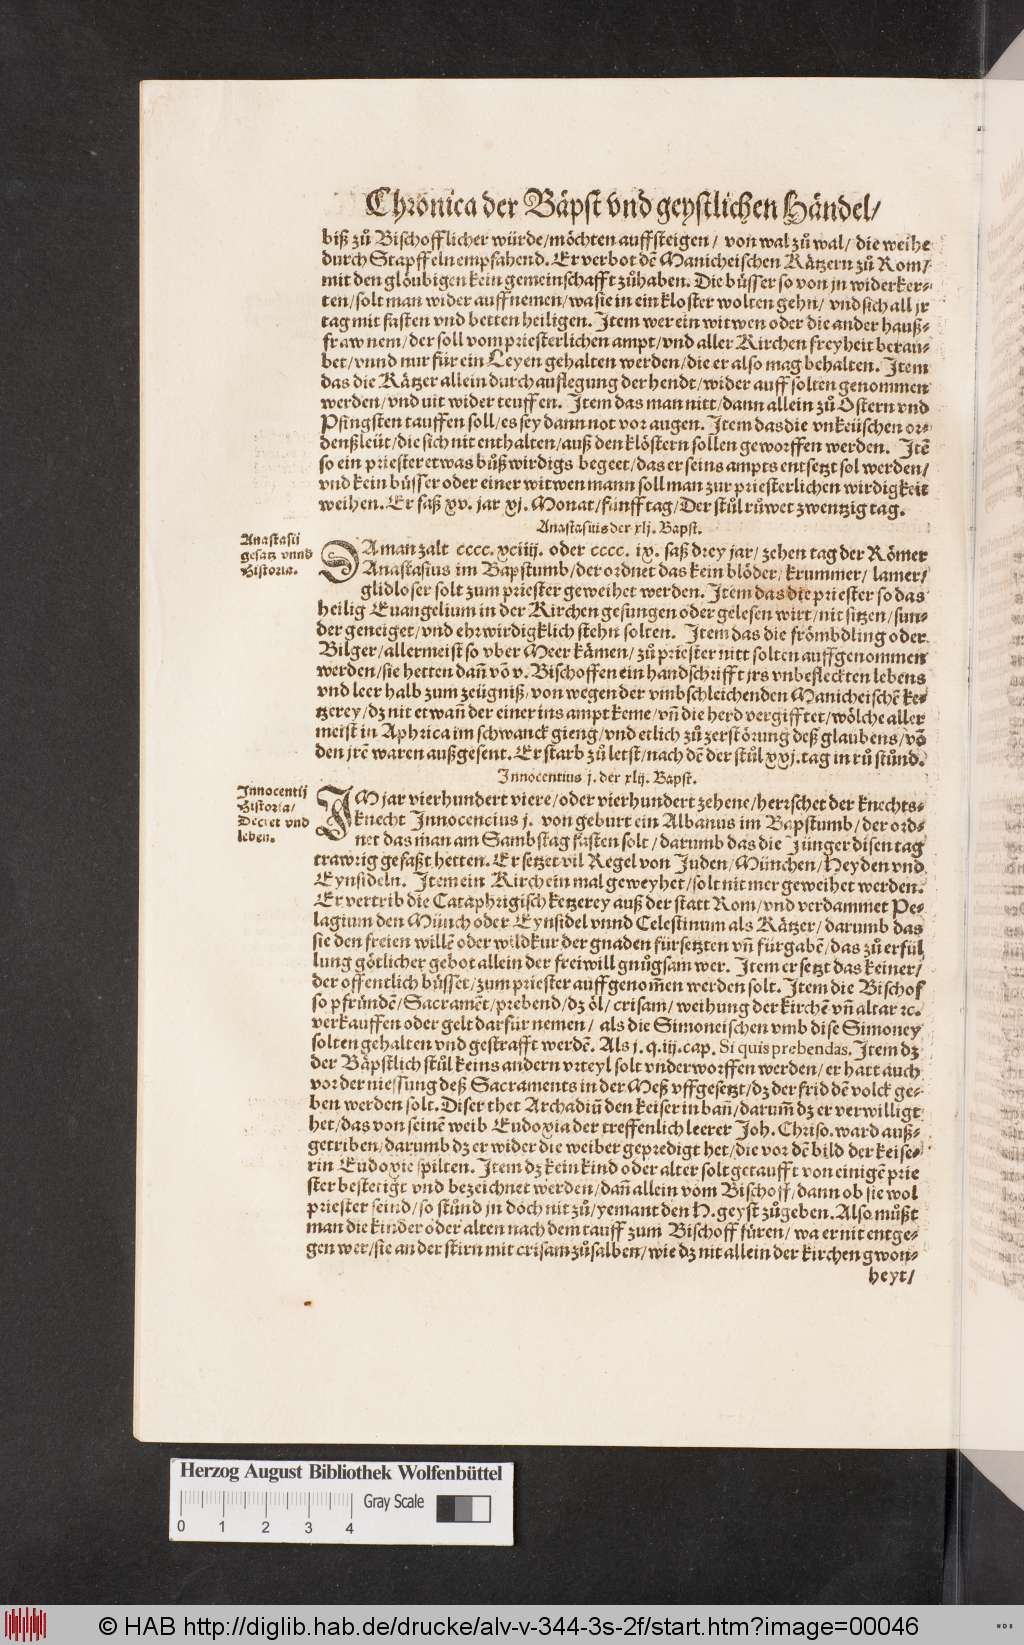 Chronica der Bäpst vnd geystlichen Händel/
biß zů Bischofflicher würde/möchten auffsteigen/ von wal zů wal/ die weihe
durch Stapffeln empfahend. Er verbot dē Manicheischen Kätzern zů Rom/
mit den glöubigen kein gemeinschafft zůhaben. Die büsser so von jn widerker-
ten/solt man wider auffnemen/wa sie in ein kloster wolten gehn/ vnd sich all jr
tag mit fasten vnd betten heiligen. Item wer ein witwen oder die ander hauß-
fraw nem/der soll vom priesterlichen ampt/vnd aller Kirchen freyheit berau-
bet/vnnd nur für ein Leyen gehalten werden/die er also mag behalten. Item
das die Kätzer allein durch auflegung der hendt/wider auff solten genommen
werden/vnd nit wider teuffen. Item das man nitt/dann allein zů Ostern vnd
Pfingsten tauffen soll/es sey dann not vor augen. Item das die vnkeüschen or-
denßleüt/die sich nit enthalten/auß den klöstern sollen geworffen werden. Itē
so ein priester etwas bůßwirdigs begeet/das er seins ampts entsetzt sol werden/
vnd kein büsser oder einer witwen mann soll man zur priesterlichen wirdigkeit
weihen. Er saß xv. jar xj. Monat/fünff tag/Der stůl růwet zwentzig tag.
Anastasius der xlj. Bapst.
Anastasij
gesatz vnnd
Historia.
DA man zalt cccc. xciiij. oder cccc. ix. saß drey jar/ zehen tag der Römer
Anastasius im Bapstumb/der ordnet das kein blöder/ krummer/ lamer/
glidloser solt zum priester geweihet werden. Item das die priester so das
heilig Euangelium in der Kirchen gesungen oder gelesen wirt/nit sitzen/sun-
der geneiget/vnd ehrwirdigklich stehn solten. Item das die frömbdling oder
Bilger/allermeist so vber Meer kämen/zů priester nitt solten auffgenommen
werden/sie hetten dañ võ v. Bischoffen ein handschrifft jrs vnbefleckten lebens
vnd leer halb zum zeügniß/von wegen der vmbschleichenden Manicheischē ke-
tzerey/dz nit etwañ der einer ins ampt keme/vñ die herd vergifftet/wölche aller
meist in Aphrica im schwanck gieng/vnd etlich zů zerstörung deß glaubens/võ
den jrē waren außgesent. Er starb zů letst/nach dē der stůl xxj. tag in rů stůnd.
Innocentius j. der xlij. Bapst.
Innocentij
Historia/
Decret vnd
leben.
IM jar vierhundert viere/oder vierhundert zehene/herrschet der knechts-
knecht Innocencius j. von geburt ein Albanus im Bapstumb/der ord-
net das man am Sambstag fasten solt/darumb das die Jünger disen tag
trawrig gefaßt hetten. Er setzet vil Regel von Juden/München/Heyden vnd
Eynsideln. Item ein Kirch ein mal geweyhet/solt nit mer geweihet werden.
Er vertrib die Cataphrigisch ketzerey auß der statt Rom/vnd verdammet Pe-
lagium den Münch oder Eynsidel vnnd Celestinum als Kätzer/darumb das
sie den freien willē oder wildkur der gnaden fürsetzten vñ fürgabē/das zů erfül
lung götlicher gebot allein der freiwill gnůgsam wer. Item er setzt das keiner/
der offentlich büsset/zum priester auffgenom̄en werden solt. Item die Bischof
so pfründē/Sacramēt/prebend/dz öl/crisam/weihung der kirchē vñ altar ꝛc.
verkauffen oder gelt darfür nemen/ als die Simoneischen vmb dise Simoney
solten gehalten vnd gestrafft werdē. Als j. q. iij. cap. Si quis prebendas. Item dz
der Bäpstlich stůl keins andern vrteyl solt vnderworffen werden/er hatt auch
vor der niessung deß Sacraments in der Meß vffgesetzt/dz der frid dē volck ge-
ben werden solt. Diser thet Archadiū den keiser in bañ/darum̄ dz er verwilligt
het/das von seinē weib Eudoxia der treffenlich leerer Joh. Chriso. ward auß-
getriben/darumb dz er wider die weiber gepredigt het/die vor dē bild der keise-
rin Eudoxie spilten. Item dz kein kind oder alter solt getaufft von einigē prie
ster bestetigt vnd bezeichnet werden/dañ allein vom Bischoff/dann ob sie wol
priester seind/so stůnd jn doch nit zů/yemant den H. geyst zůgeben. Also můßt
man die kinder oder alten nach dem tauff zum Bischoff füren/ wa er nit entge-
gen wer/sie an der stirn mit crisam zůsalben/wie dz nit allein der kirchen gwon-
heyt/
Herzog August Bibliothek Wolfenbüttel
Gray Scale
0 1 2 3 4
© HAB http://diglib.hab.de/drucke/alv-v-344-3s-2f/start.htm?image=00046